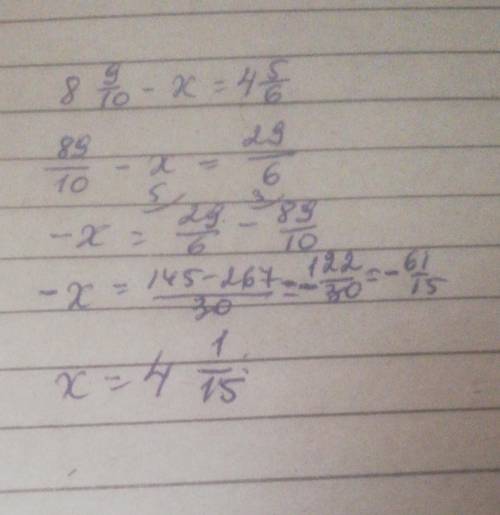 8 9/10 - x = 4 5/6
89/10 - x = 29/6
-x = 5/ 29/6 - 3/ 89/10
-x = 145-267/30 = -122/30 = -61/15
x = 4 1/15